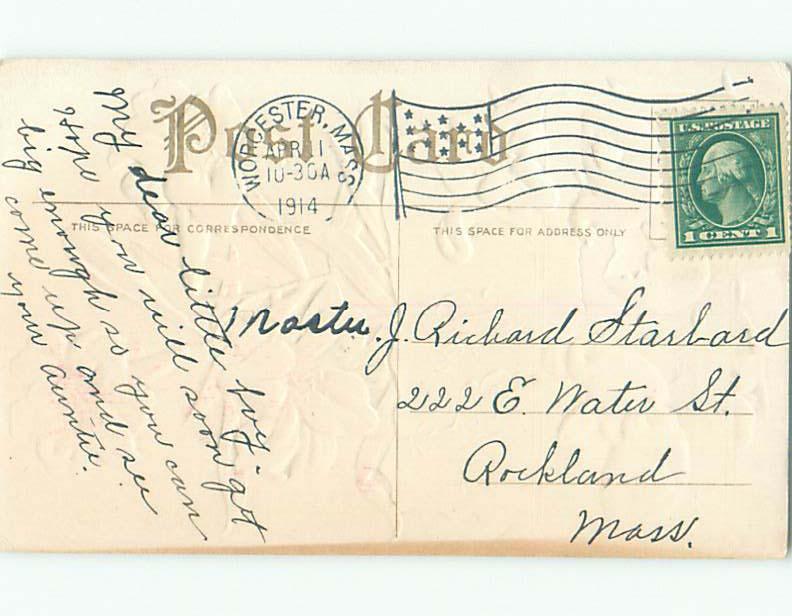 Post Card
WORCESTER, MASS.
APR 11
10-30A
1914
U.S. POSTAGE
1 CENT 1
THIS SPACE FOR CORRESPONDENCE
THIS SPACE FOR ADDRESS ONLY
My dear little boy-
Hope you will soon get
big enough so you can
come up and see
your auntie.
Master. J. Richard Starbard
222 E. Water St.
Rockland
Mass.